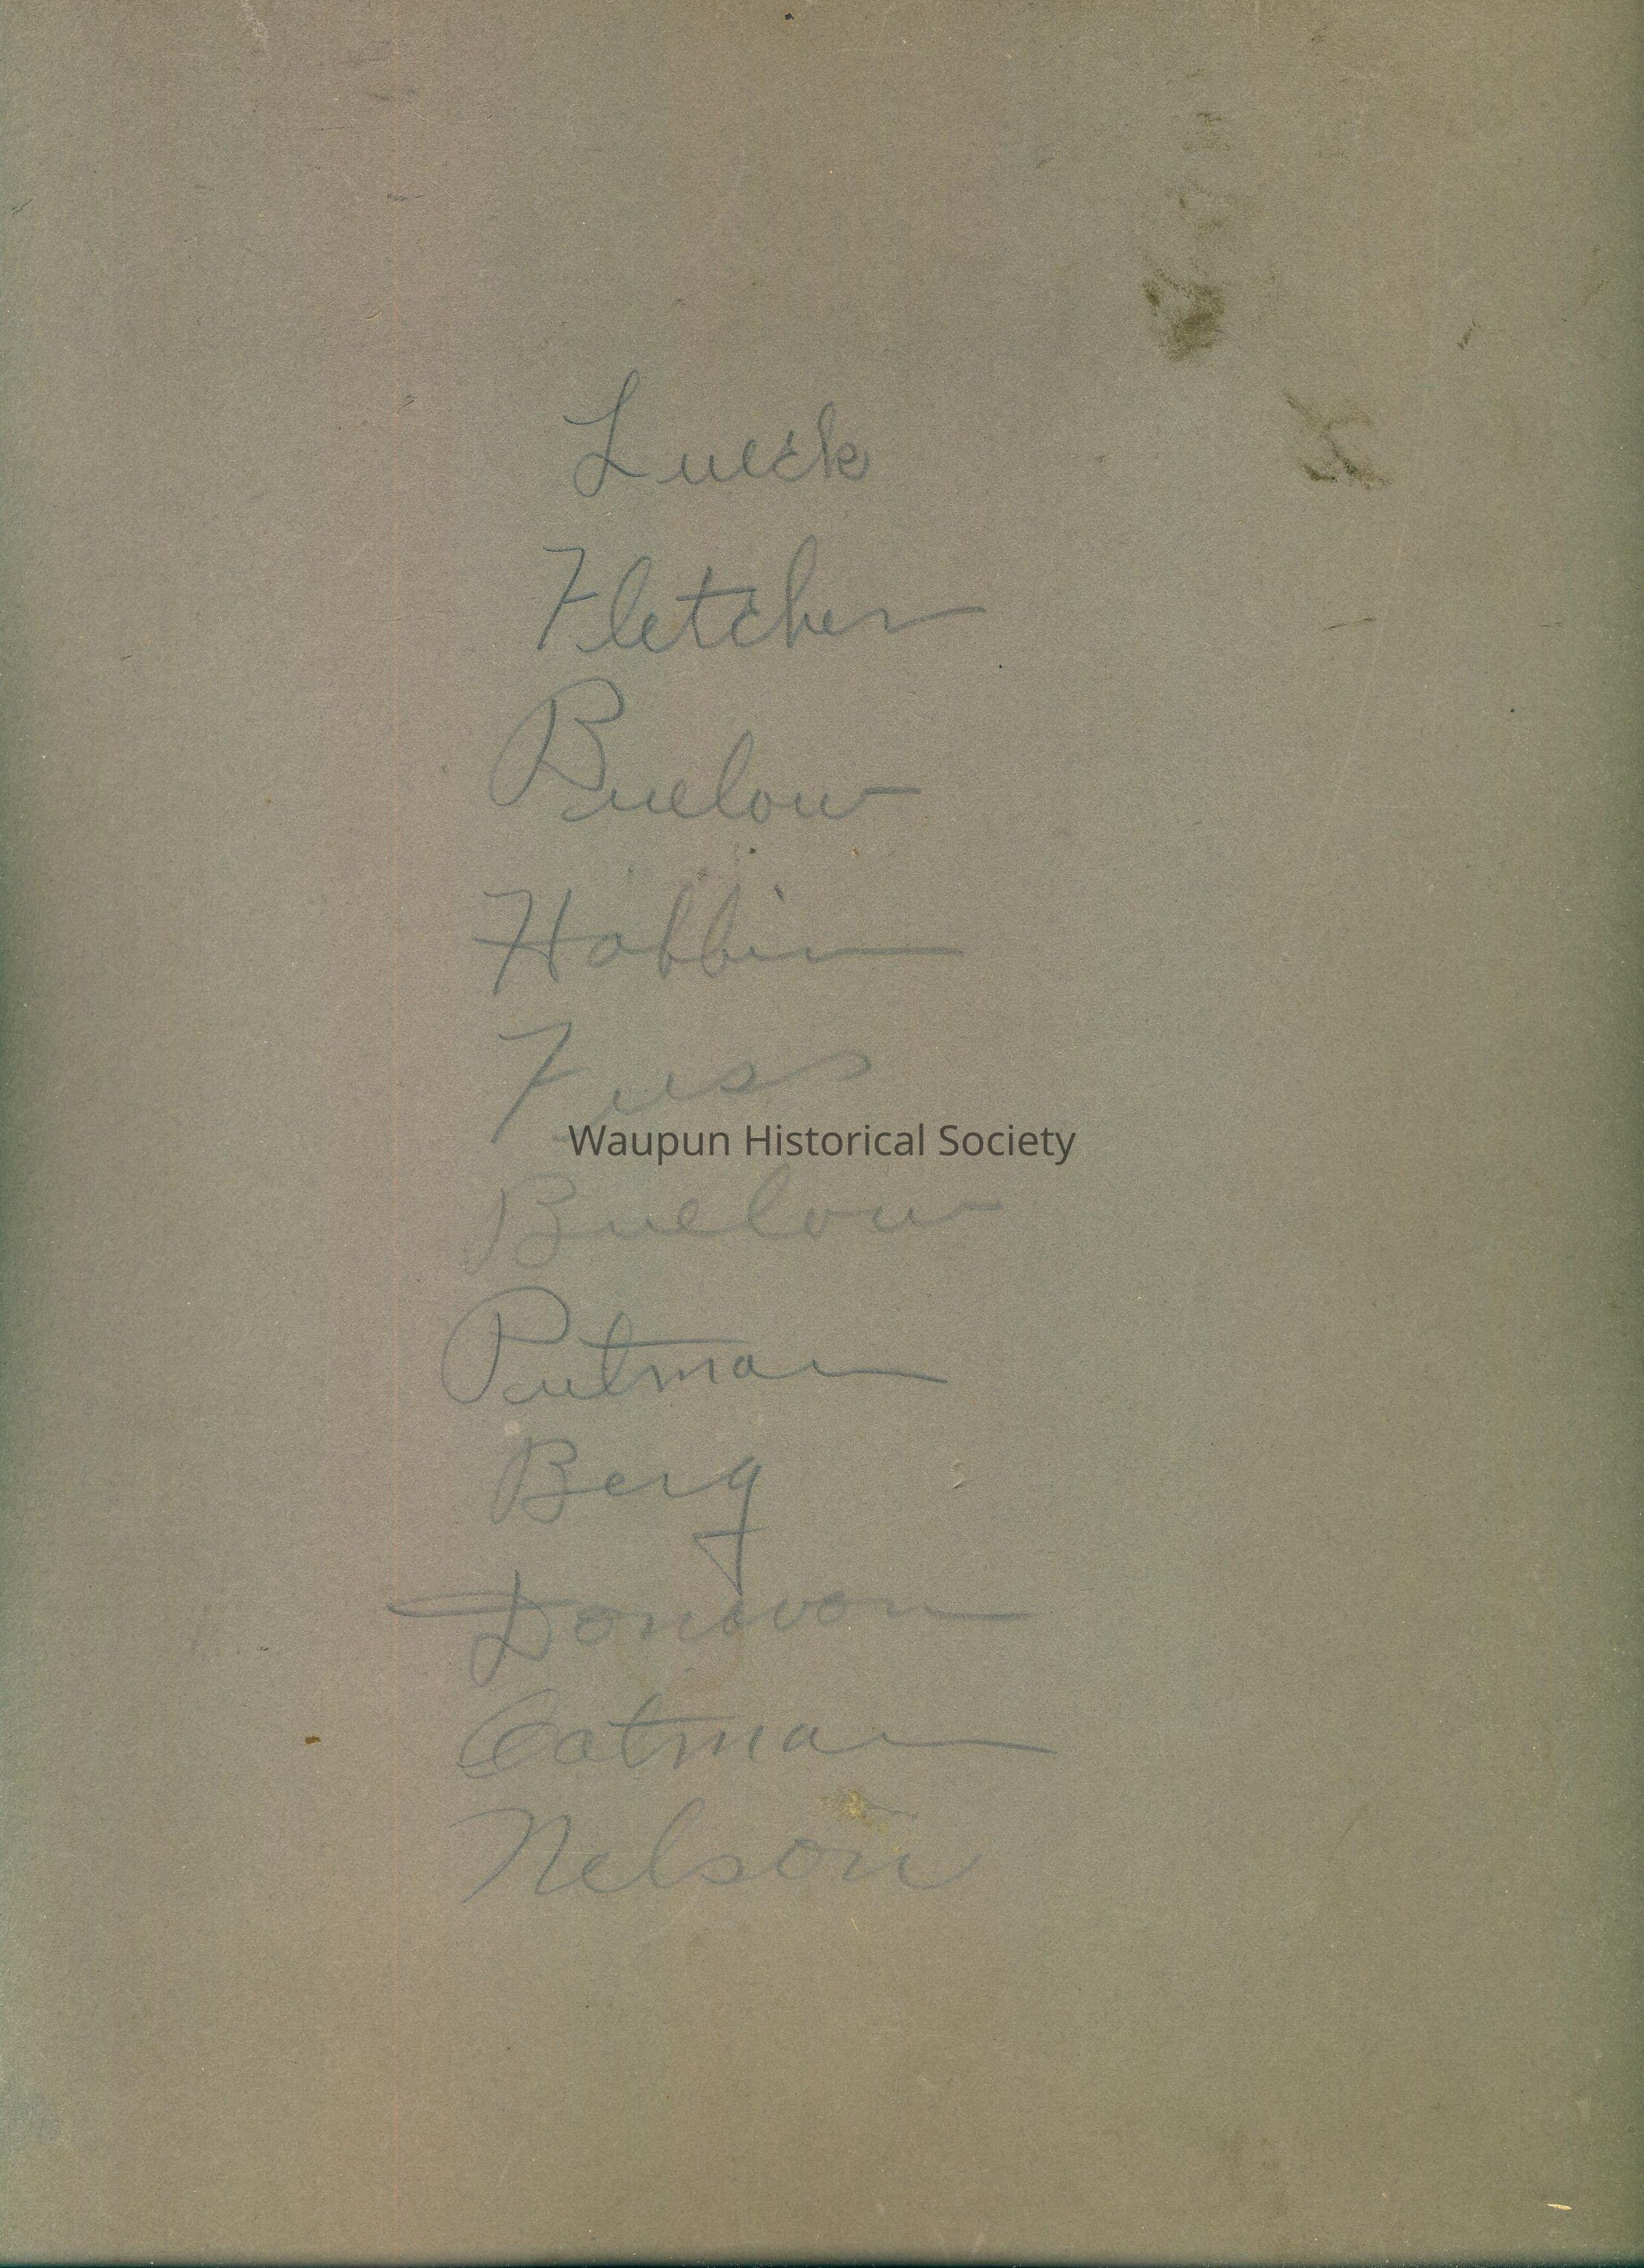 Lueck
Fletcher
Buelow
Hobbin
Fuss
Waupun Historical Society
Buelow
Putman
Berg
Donovon
Oatman
Nelson